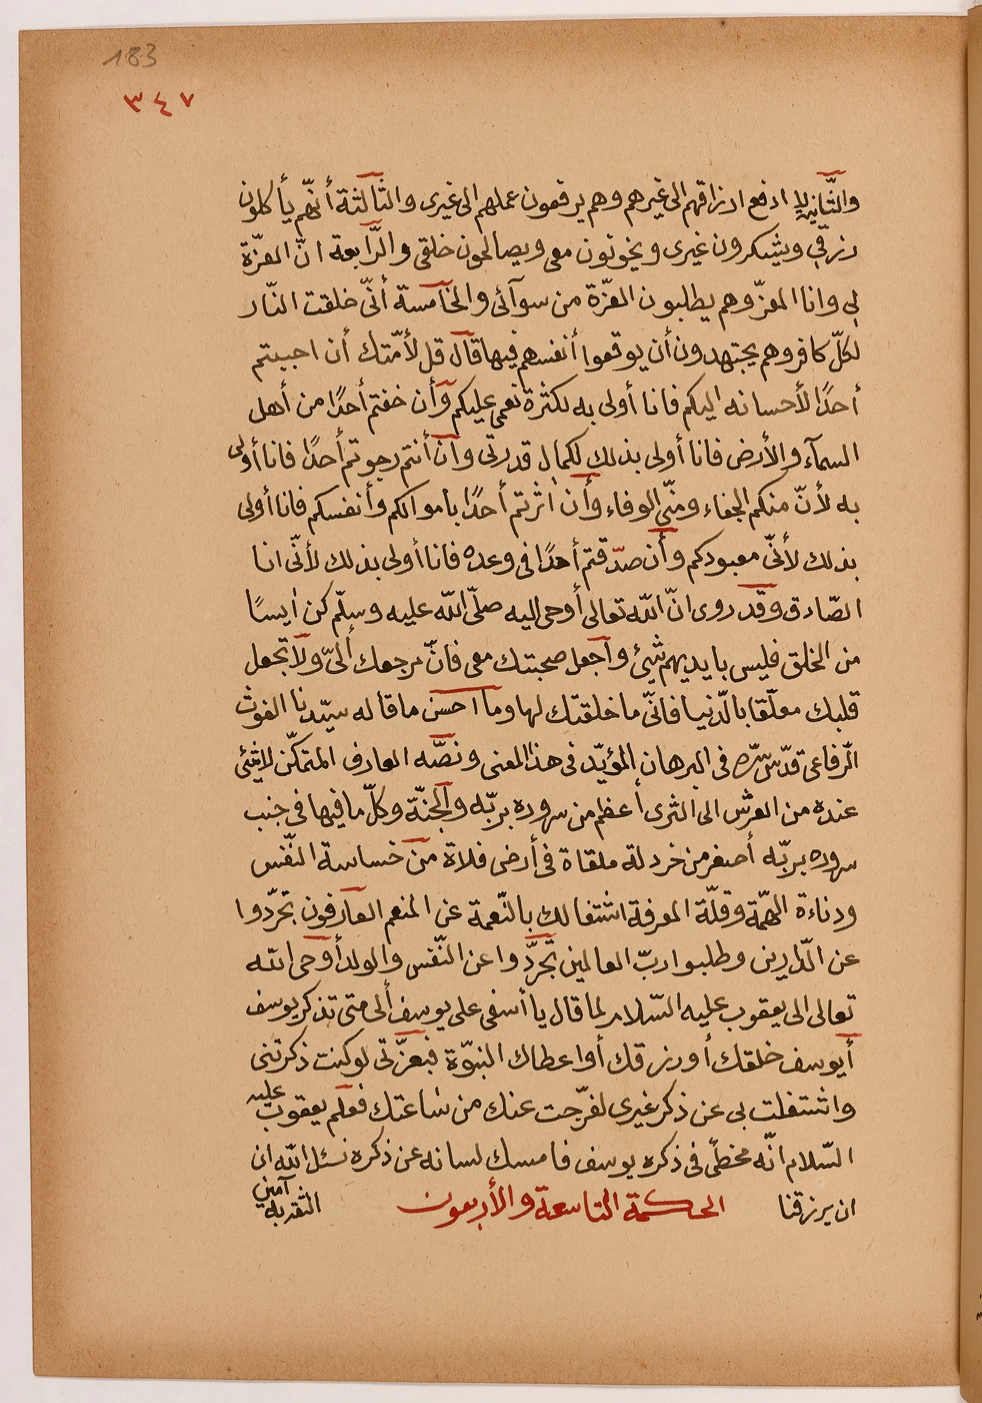 183
٣٤٧
والثّانية لا ادفع ارزاقهم الى غيرهم وهم يرفعون عملهم الى غيرى والثّالثة أنّهم يأكلون
رزقي ويشكرون غيرى ويخونون معى ويصالحون خلقى والرّابعة انّ العزّة
لي وانا المعزّ وهم يطلبون العزّة من سوآئى والخامسة أنّى خلقت النّار
لكلّ كافر وهم يجتهدون أن يوقعوا أنفسهم فيها قال قل لأمّتك أن احببتم
أحدًا لأحسانه اليكم فانا أولى به لكثرة نعمى عليكم وأن خفتم أحدًا من أهل
السمآء والأرض فانا أولى بذلك لكمال قدرتى وأن أنتم رجوتم أحدًا فانا أولى
به لأنّ منكم الجفاء ومنّى الوفاء وأن اثرتم أحدًا بأموالكم وأنفسكم فانا أولى
بذلك لأنّى معبودكم وأن صدّقتم أحدًا فى وعده فانا أولى بذلك لأنّى انا
الصّادق وقد روى انّ اللّه تعالى أوحى اليه صلّى اللّه عليه وسلّم كن اٰيسًا
من الخلق فليس بايديهم شيئ وأجعل صحبتك معى فانّ مرجعك ألىّ ولا تجعل
قلبك معلّقا بالدّنيا فانّى ما خلقتك لها وما احسن ما قاله سيّدنا الغوث
الرّفاعى قدّس سرّه فى البرهان المؤيّد فى هذا المعنى ونصّه العارف المتمكّن لاشيئ
عنده من العرش الى الثرى أعظم من سروره بربّه والجنّة وكلّ ما فيها فى جنب
سروره بربّه أصغر من خردلة ملقاة فى أرض فلاة من خساسة النّفس
ودناءة الهّمة وقلّة المعرفة اشتغالك بالنّعمة عن المنعم العارفون تجرّدوا
عن الدّارين وطلبوا ربّ العالمين تجرّدوا عن النّفس والولد أوحى اللّه
تعالى الى يعقوب عليه السّلام لما قال يا أسفى على يوسف ألى متى تذكر يوسف
أيوسف خلقك أو رزقك أو اعطاك النبوّة فبعزّتى لو كنت ذكرتنى
واشتغلت بى عن ذكر غيرى لفرّجت عنك من ساعتك فعلم يعقوب عليه
السّلام انّه مخطأى فى ذكره يوسف فامسك لسانه عن ذكره نسئل اللّه ان
ان يرزقنا الحكمة التاسعة والأربعون الثقة به آمين